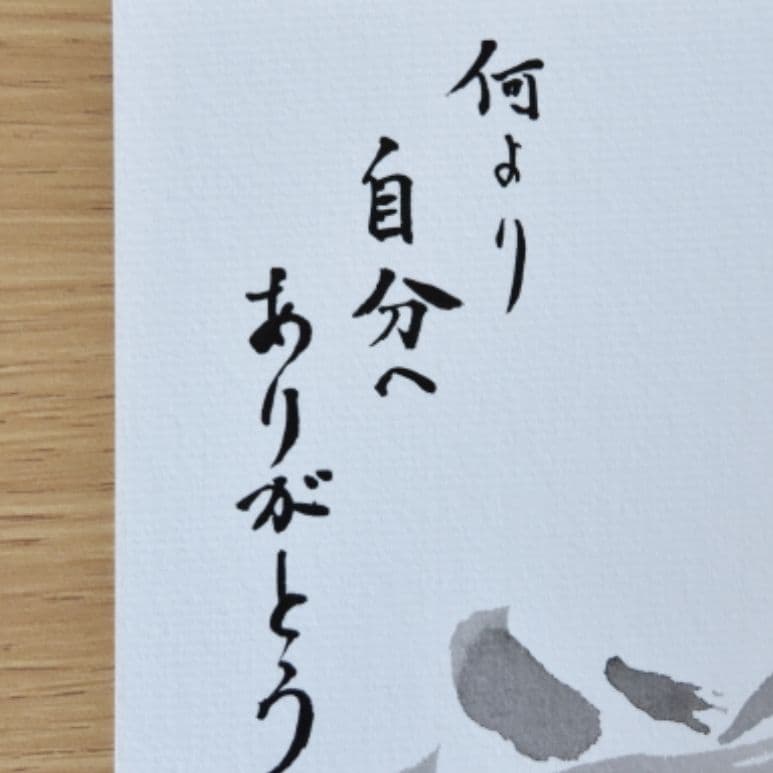 何より
自分へ
ありがとう